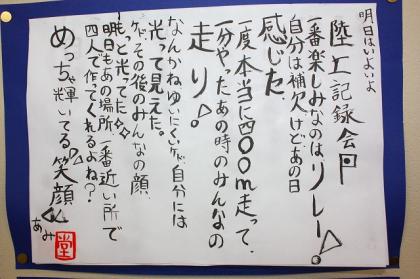 明日はいよいよ
陸上記録会
一番楽しみなのは、リレー!。
自分は補欠けど、あの日
感じた.
一度、本当に四〇〇m走って、
一分やったあの時のみんなの
走り!。
なんかねゆいにくいケド、自分には
光って見えた。
ケド、その後のみんなの顔、
もっと光ってた
明日もあの場所、一番近い所で
四人で作ってくれるよね?
めっちゃ輝いてる笑顔
あみ
堂